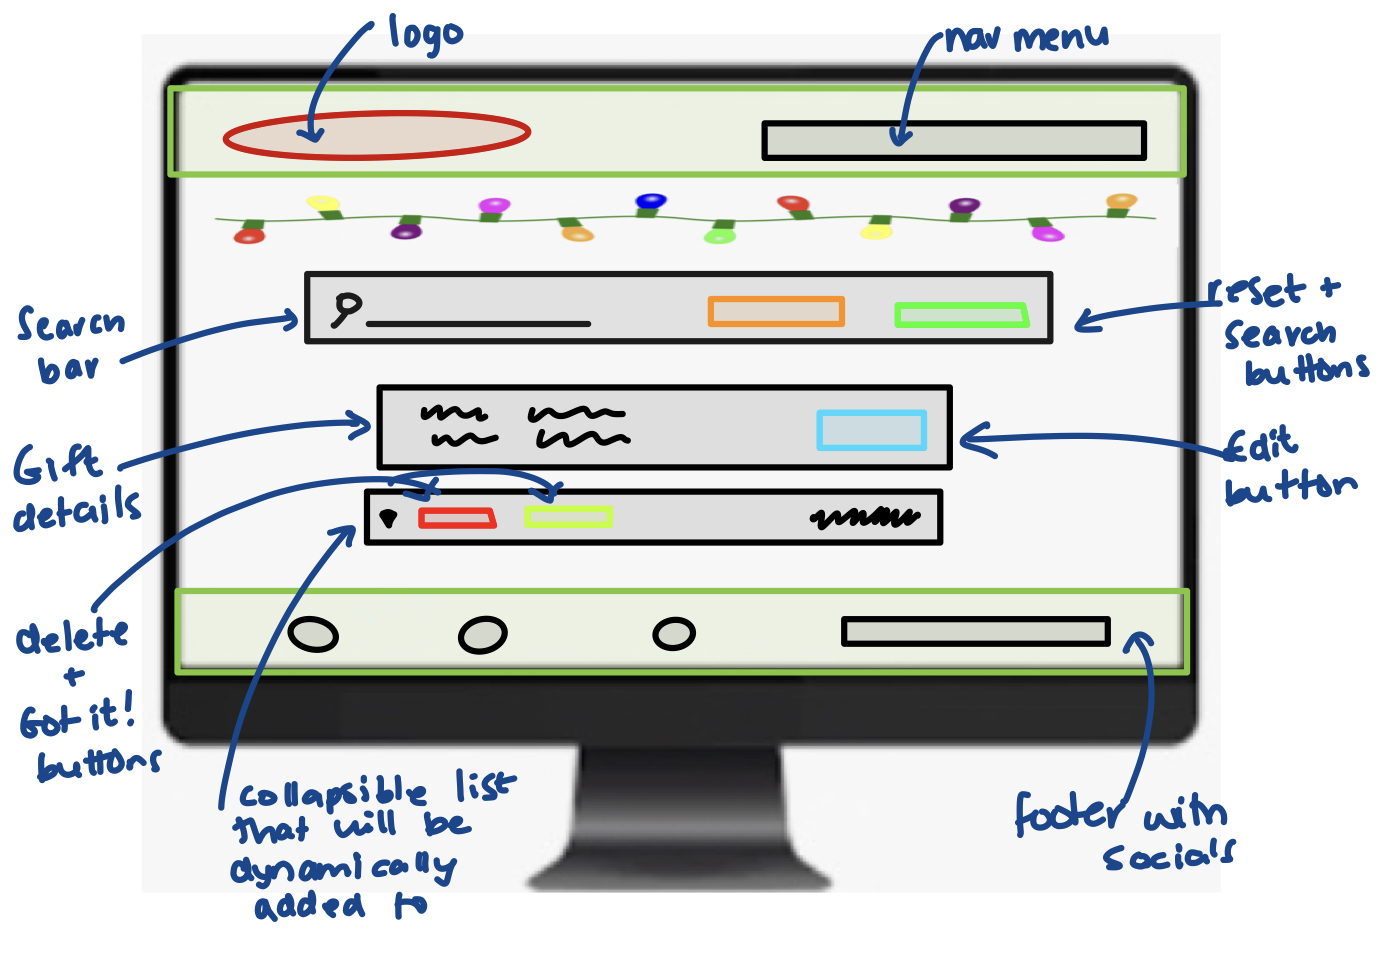 logo
nav menu
Search
bar
reset +
search
buttons
Gift
details
Edit
button
delete
+
Got it!
buttons
collapsible list
that will be
dynamically
added to
footer with
socials